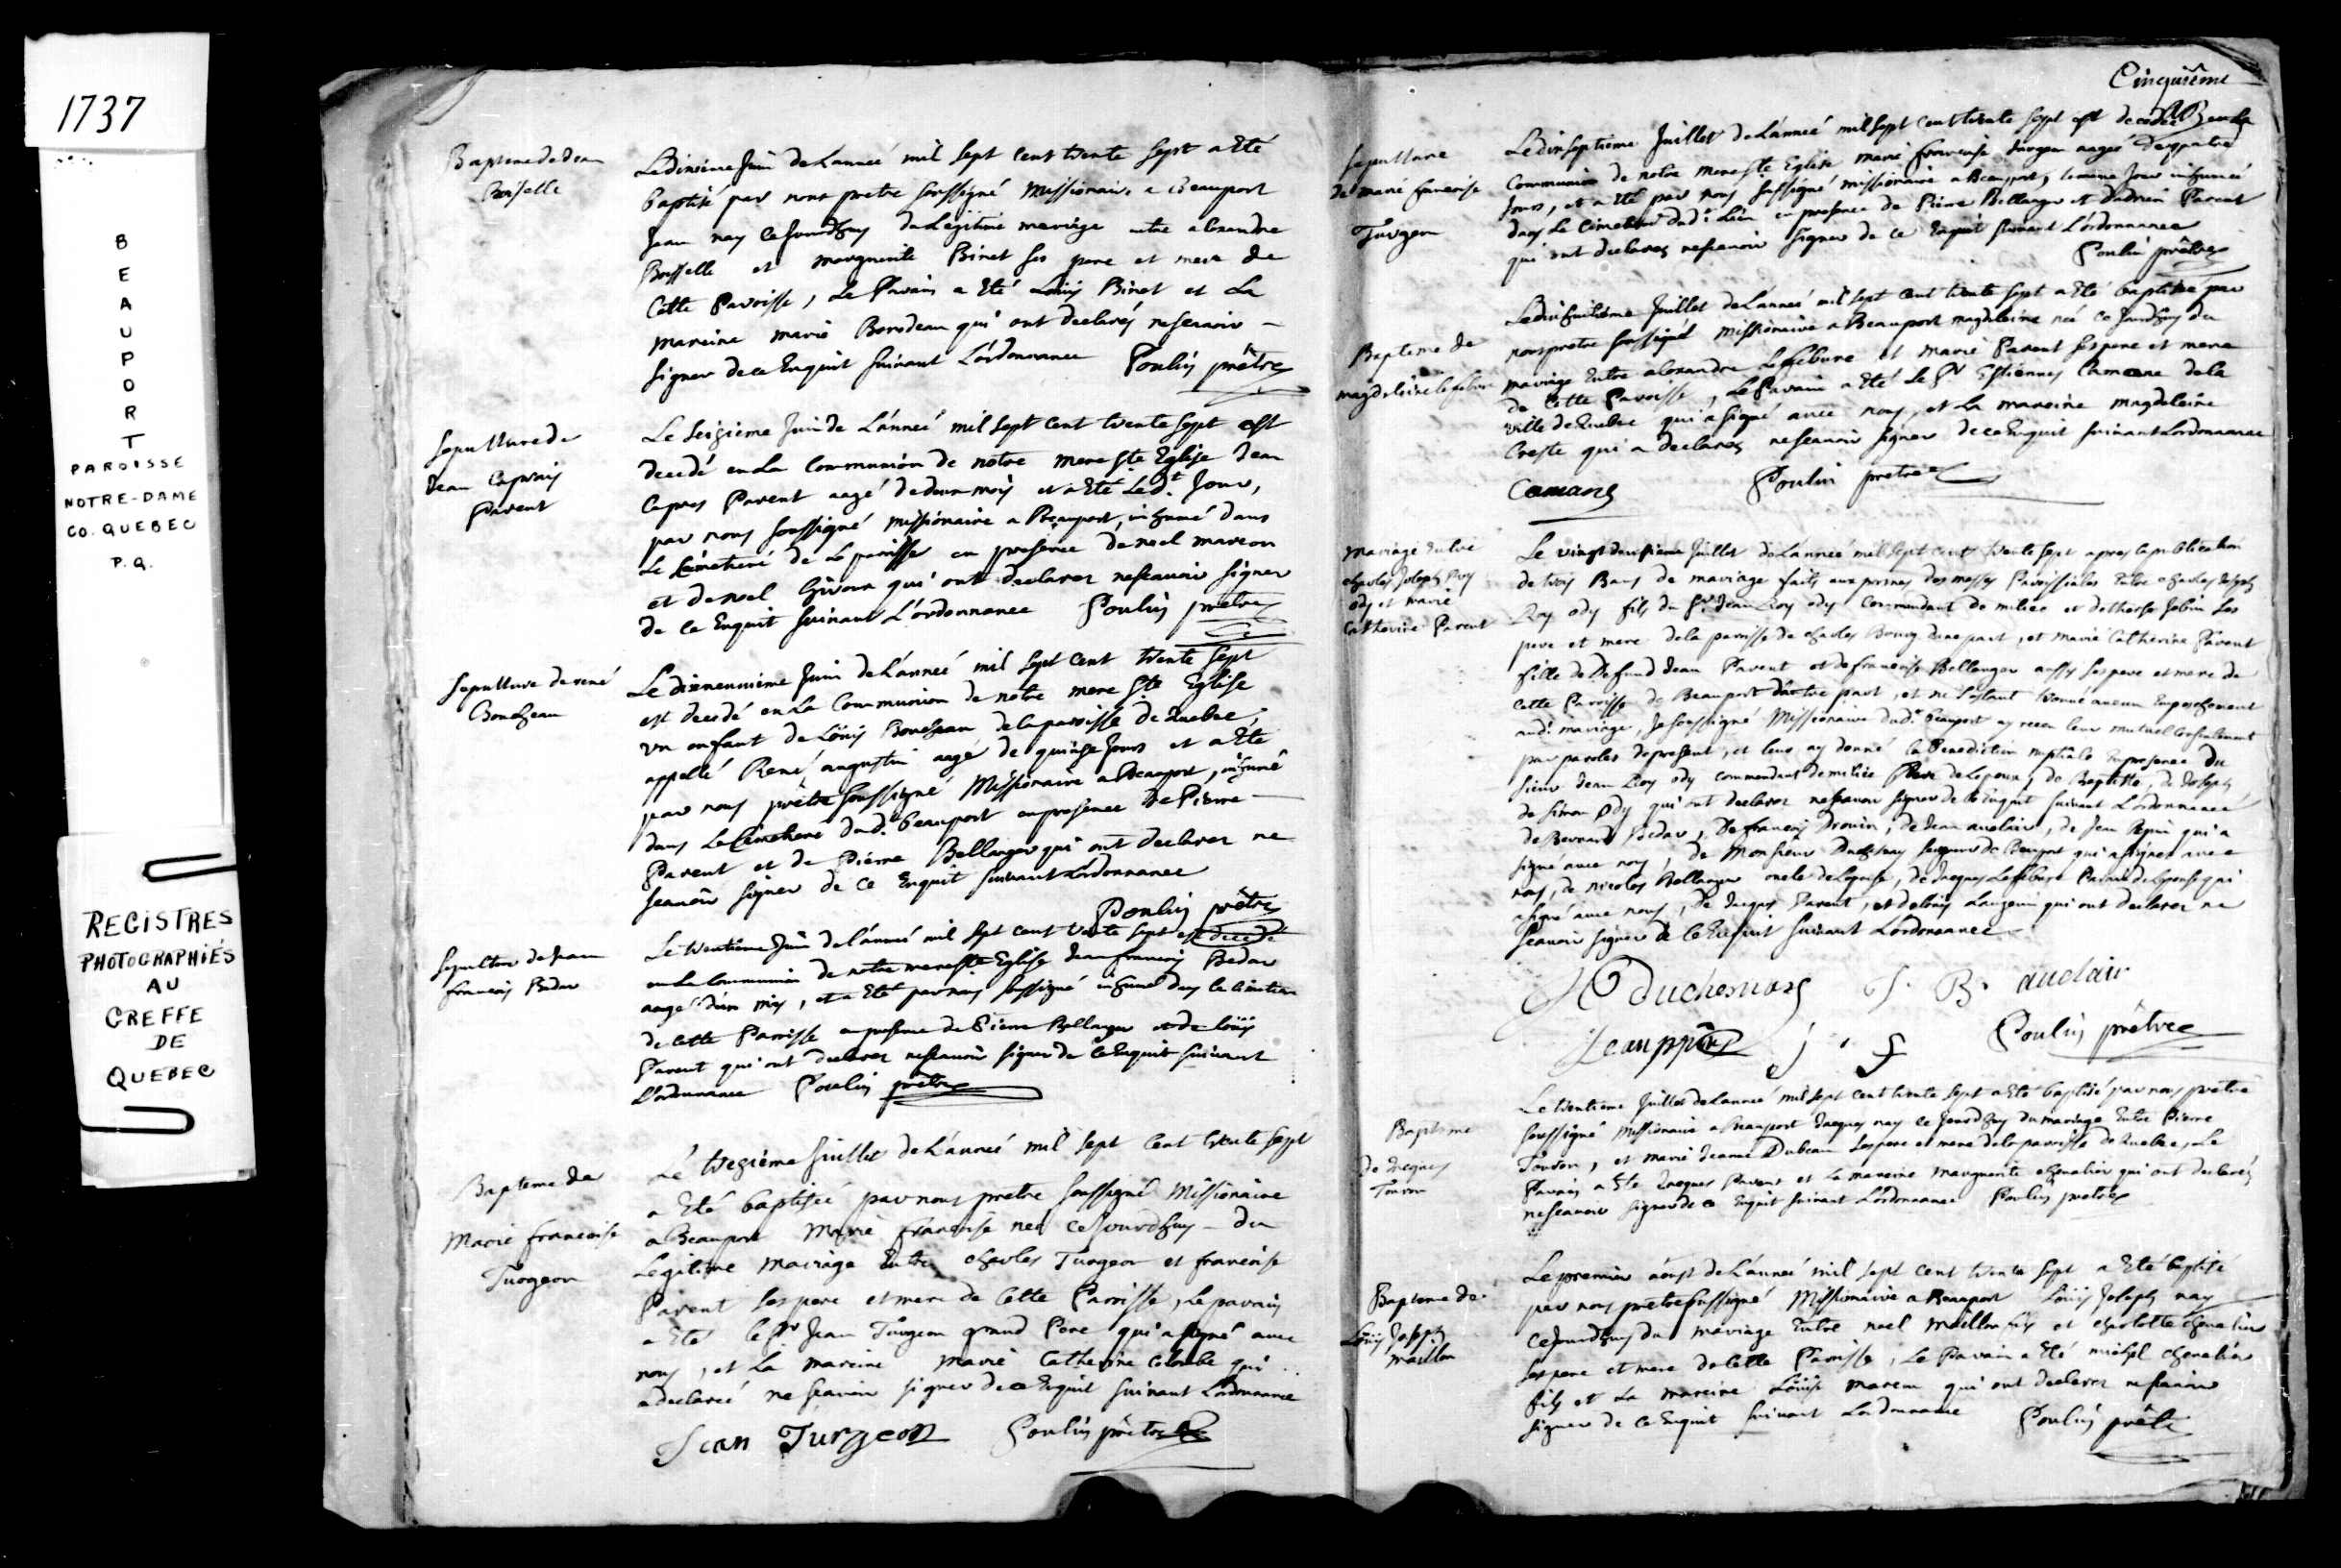 1737
B
E
A
U
P
O
R
T
PAROISSE
NOTRE-DAME
CO. QUEBEC
P.Q.
REGISTRES
PHOTOGRAPHIÉS
AU
GREFFE
DE
QUEBEC
Bapteme de Jean
Boisselle
Le dixieme Juin de L'anneé mil sept cent trente sept a Eté
baptisé par nous pretre soussigné Missionaire a Beauport
Jean nay ce Jourd'huy du Legitime mariage entre alexandre
Boisselle et marguerite Binet ses pere et mere de
Cette Paroisse, Le Parain a Eté Loüis Binet et La
mareine marie Borodeau qui ont declarés nescavoir
signer de ce Enquit suivant L'ordonnance Poulin prêtre
Sepulture de
Jean Caprais
Parent
Le Seizieme Juin de L'anneé mil sept cent trente sept est
decedé en La Communion de notre mere Ste Eglise Jean
Capres Parent aagé de deux mois et a Eté Led.t Jour,
par nous soussigné missionaire a Beauport, inhumé dans
Le Cimetiere de La paroisse en presence de noel marcou
et de noel Giroux qui ont declarez nescavoir signer
de ce Enquit suivant L'ordonnance Poulin pretre
Sepulture de rené
Boucheau
Le dixneuvieme Juin de L'anneé mil sept cent trente sept
est decedé en La Communion de notre mere Ste Eglise
un enfant de Loüis Boucheau de la paroisse de Quebec,
appellé René augustin aagé de quinze Jours et a Eté
par nous prêtre soussigné Missionaire a Beauport, inhumé
dans Le Cimetiere dud.t beauport en presence de Pierre
Parent et de Pierre Bellanger qui ont declarez ne
scavoir signer de ce Enquit suivant L'ordonnance
Poulin prêtre
Sepulture de Jean
francois Bedar
Le trentieme Juin de l'anneé mil sept cent trente sept est decedé
en La Communion de notre mere Ste Eglise Jean francois Bedar
aagé d'un mois, et a Eté par nous soussigné inhumé dans le Cimetiere
de cette Paroisse en presence de Pierre Bellanger et de Loüis
Parent qui ont declarez nescavoir signer de ce Enquit suivant
L'ordonnance Poulin prêtre
Bapteme de
Marie francoise
Turgeon
Le treizieme Juillet de L'anneé mil sept cent trente sept
a Eté baptiseé par nous pretre soussigné Missionaire
a Beauport Marie francoise neé ce Jourd'huy du
Legitime mariage Entre charles Turgeon et francoise
Parent ses pere et mere de Cette Paroisse, Le parain
a Eté le Sr Jean Turgeon grand Pere qui a signé avec
nous, et La mareine marie Catherine colombe qui
a declareé ne scavoir signer de ce Enquit suivant L'ordonnance
Jean Turgeon Poulin prêtre
Cinquiême
Sepulture
de marie francoise
Turgeon
Le dixseptieme Juillet de L'anneé mil sept cent trente sept est decedeé en La
Communion de notre mere Ste Eglise marie francoise turgeon aageé de quatre
Jours, et a Eté par nous soussigné missionaire a Beauport, le meme Jour inhumeé
dans Le Cimetiere dud.t Lieu en presence de Pierre Bellanger et d'adrien Parent
qui ont declarez nescavoir signer de ce Enquit suivant L'ordonnance
Poulin prêtre
Bapteme de
magdeleine lefebvre
Le dixhuitieme Juillet de L'anneé mil sept cent trente sept a Eté baptiseé par
nous pretre soussigné missionaire a Beauport magdeleine neé ce Jourd'huy du
mariage Entre alexandre Lefebvre et marie Parent ses pere et mere
de Cette Paroisse, Le Parain a Eté Le Sr Estiennes Camane de la
ville de Quebec qui a signé avec nous, et La mareine magdeleine
Creste qui a declarez nescavoir signer de ce Enquit suivant L'ordonnance
Camane Poulin pretre
Mariage Entre
charles Joseph Roy
ody et marie
Catherine Parent
Le vingt deuxieme Juillet de L'anneé mil sept cent trente sept apres la publication
de trois Bans de mariage faits aux prones des messes Paroissiales Entre charles Joseph
Roy ody fils du Sr Jean Roy ody Commandant de milice et de therese Jobin ses
pere et mere de la paroisse de charles Bourg d'une part, et marie Catherine Parent
fille de Defund Jean Parent et de francoise Bellanger aussy ses pere et mere de
cette Paroisse de Beauport d'autre part, et ne s'estant trouvé aucun Empeschement
aud.t mariage, Je soussigné Missionaire dud.t beauport ay receu leur mutuel Consentement
par paroles de present, et leur ay donné la Benediction nuptiale En presence du
sieur Jean Roy ody commandant de milice Pere de L'epoux, de Baptiste, de Joseph
de Simon Ody qui ont declarez nescavoir signer de ce Enquit suivant L'ordonnance
de Bernard Bedar, De francois Drouin, de Jean auclair, de Jean Pepin qui a
signé avec nous, de Monsieur Duchesnay seigneur de Beauport qui a signé avec
nous, de nicolas Bellanger oncle de L'epouse, de Jacques Lefebvre Parain de L'epouse qui
a signé avec nous, De Jacques Parent, et de loüis Langevin qui ont declarez ne
scavoir signer de ce Enquit suivant L'ordonnance
Duchesnay J. B. auclair
Jean ppin j. f Poulin prêtre
Bapteme
de Jacques
Touron
Le trentieme Juillet de L'anneé mil sept cent trente sept a Eté baptisé par nous pretre
soussigné Missionaire a Beauport Jacques nay ce Jourd'huy du mariage Entre Pierre
Touron, et marie Jeanne Dubeau ses pere et mere de la paroisse de Quebec, Le
Parain a Eté Jacques Parent et La mareine marguerite chevalier qui ont declarés
nescavoir signer de ce Enquit suivant L'ordonnance Poulin pretre
Bapteme de
Loüis Joseph
maillou
Le premier aoust de L'anneé mil sept cent trente sept a Eté baptisé
par nous pretre soussigné Missionaire a Beauport Loüis Joseph nay
ce Jourd'huy du mariage Entre noel maillou fils et charlotte chevalier
ses pere et mere de Cette Paroisse, Le Parain a Eté michel chevalier
fils et La mareine Loüise marcou qui ont declarez nescavoir
signer de ce Enquit suivant L'ordonnance Poulin prêtre